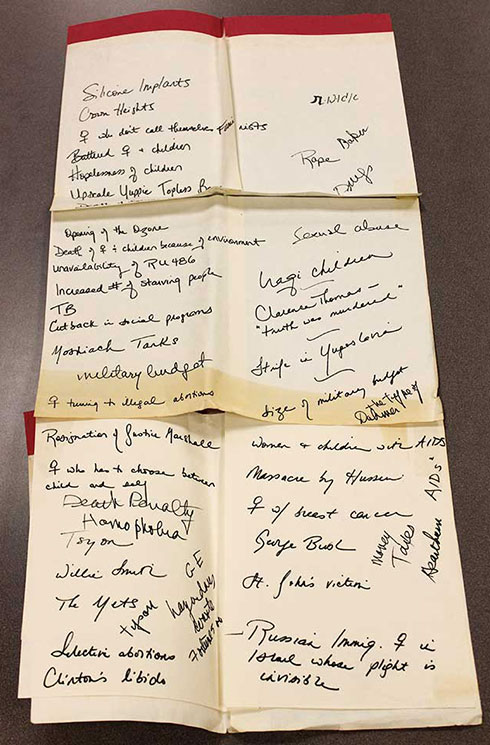 Silicone Implants
Crown Heights
♀ who don't call themselves Feminists
Battered ♀ + children
Hopelessness of children
Upscale Yuppie Topless
Rape
Baker
Drugs
Opening of the Ozone
Death of ♀ + children because of environment
unavailability of RU 486
Increased # of starving people
TB
Cutback in social programs
Moshiach Tanks
military budget
♀ turning to illegal abortions
Sexual abuse
Nazi children
Clarence Thomas –
"truth was murdered"
Strife in Yugoslavia
Size of military budget
Resignation of Justice Marshall
♀ who has to choose between
child and self
Death Penalty
Homophobia
Tyson
Willie Smith
The Mets
tyson
GE
hazardous
waste
Selective abortions
Clinton's libido
Women + children with AIDS
Massacre by Hussein
♀ w/ breast cancer
George Bush
Money
Talks
AIDS
St. John's victim
– Russian Immig. ♀ in
Israel whose plight is
invisible